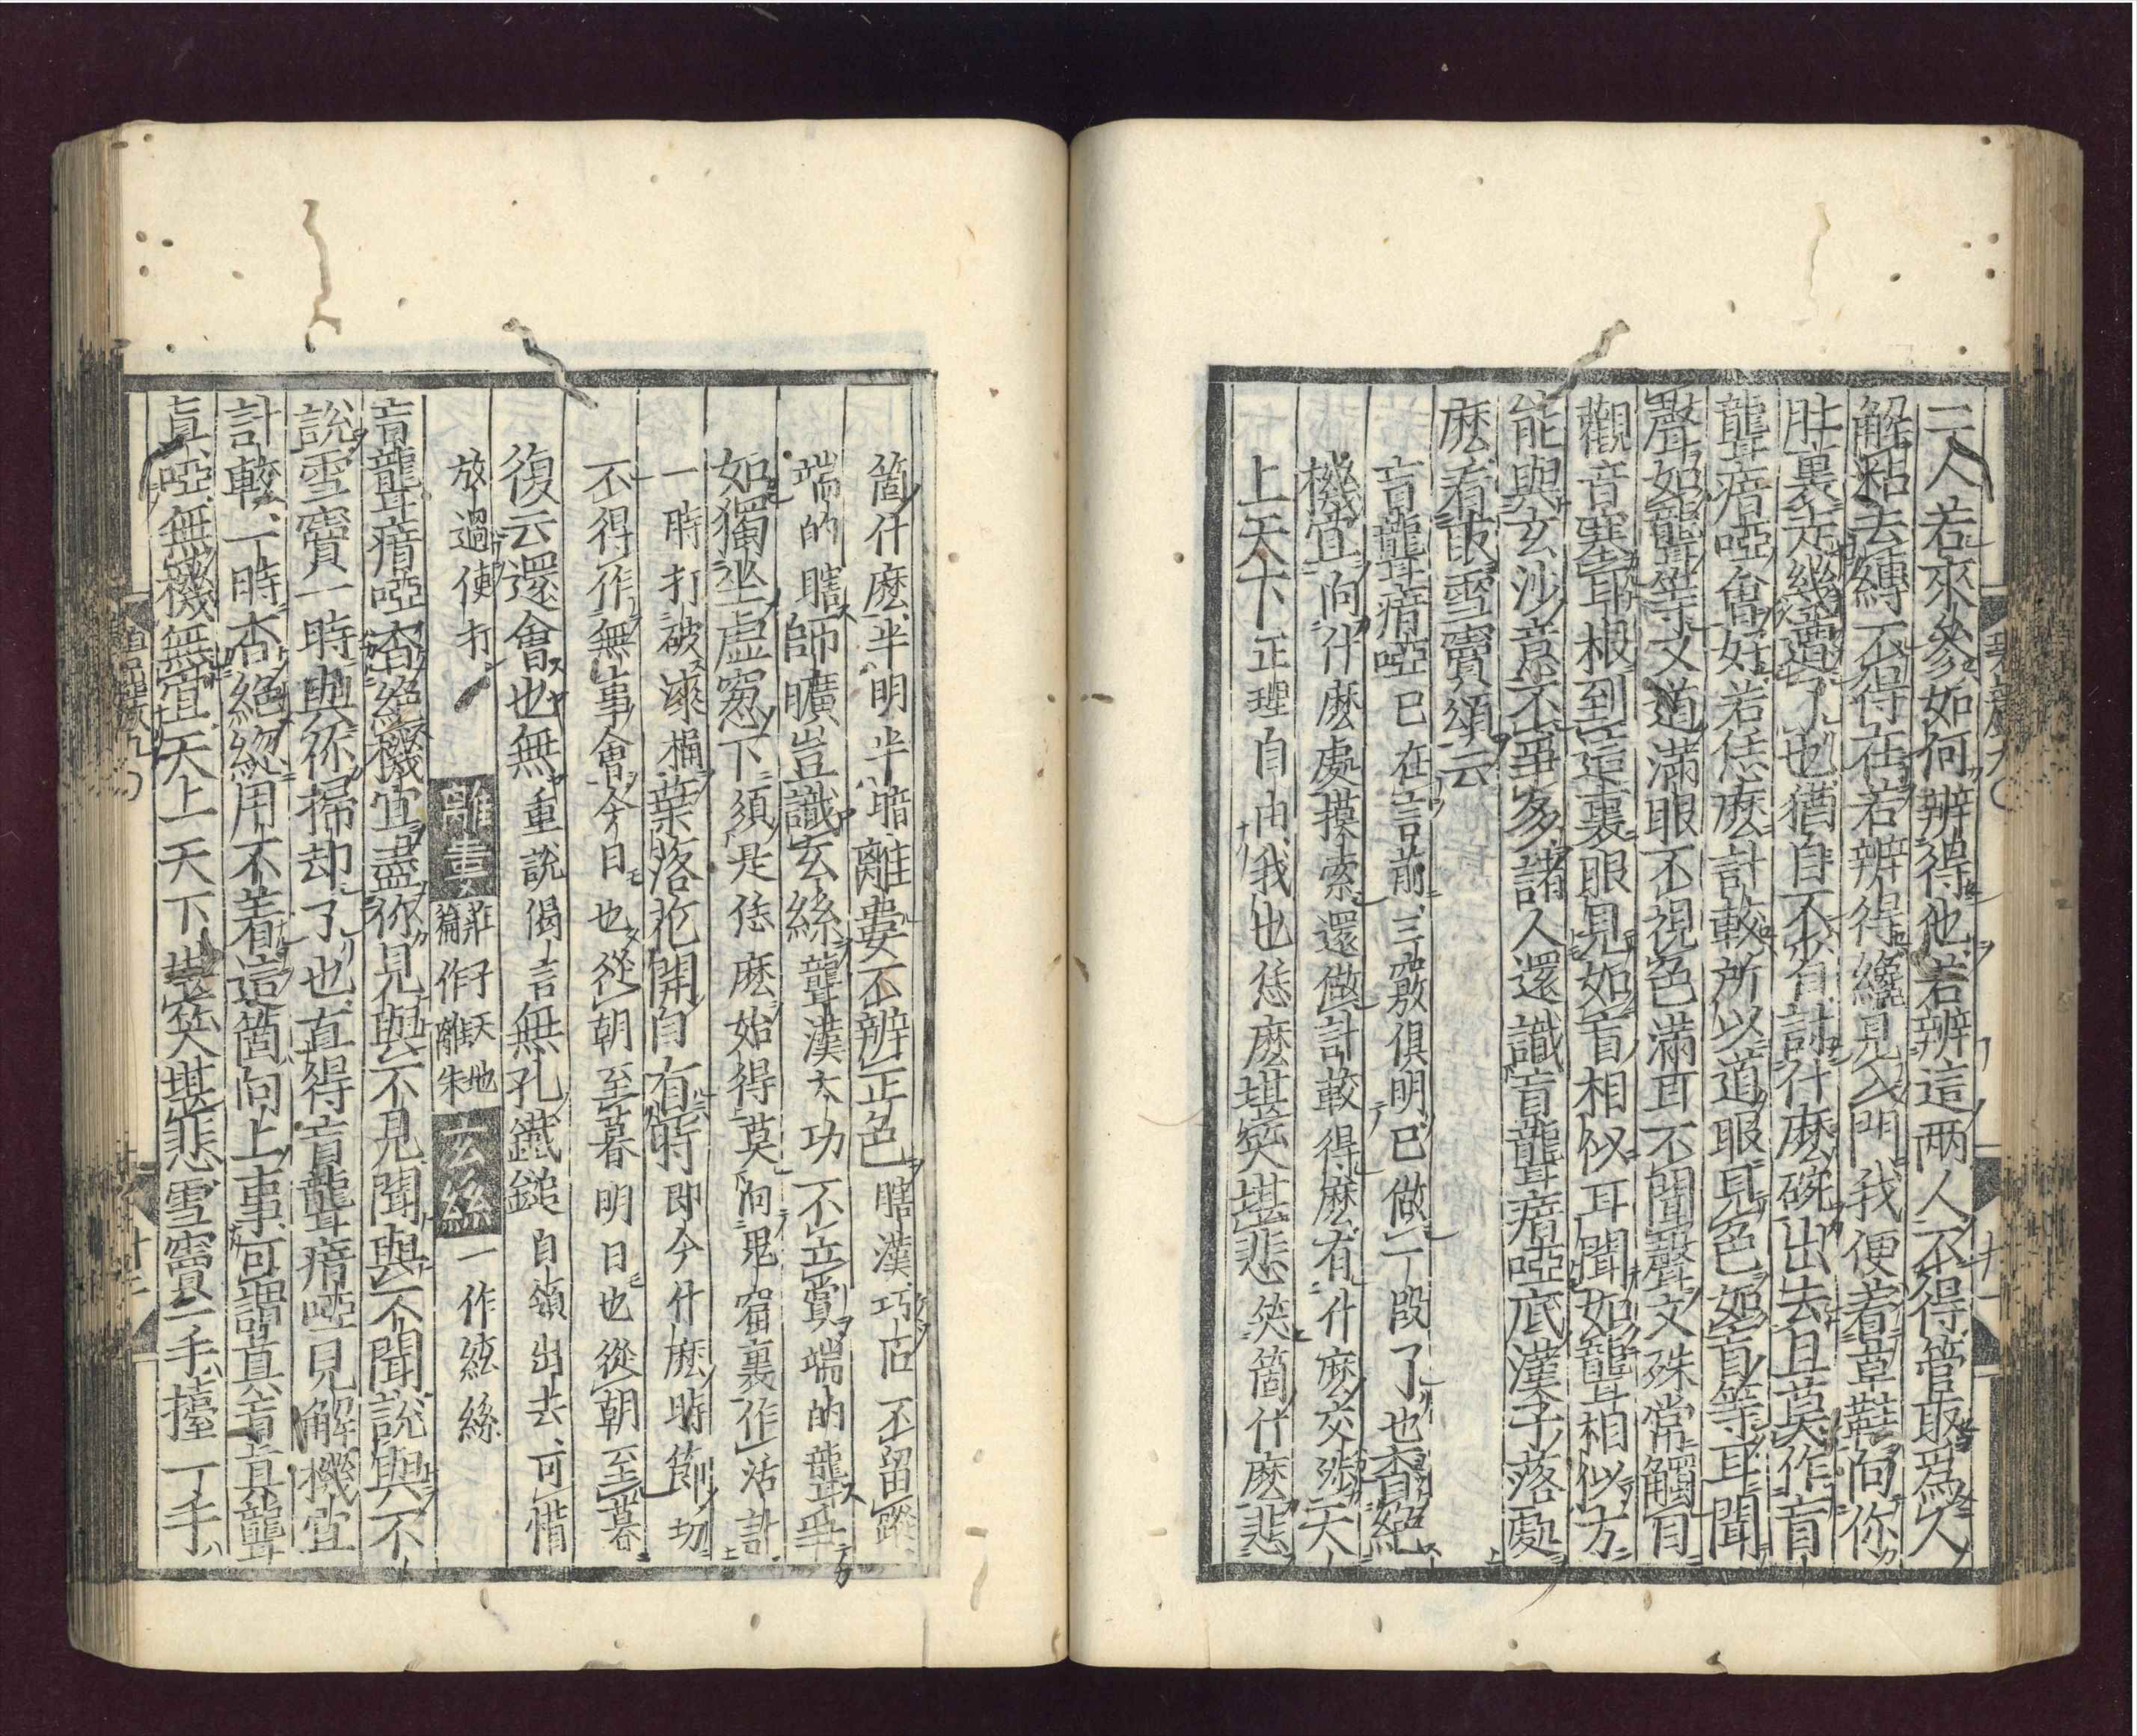 二人若來參如何辨得他若辨這兩人不得管取爲人
解粘去縛不得在若辨得纔見入門我便着草鞋向你
肚裏走幾遭了也猶自不省討什麽碗出去且莫作盲
聾瘖啞會好若恁麽計較所以道眼見色如盲等耳聞
聲如聾等又道滿眼不視色滿耳不聞聲文殊常觸目
觀音塞耳根到這裏眼見如盲相似耳聞如聾相似方
能與玄沙意不爭多諸人還識盲聾瘖啞底漢子落處
麽看取雪竇頌云
盲聾瘖啞已在言前三竅俱明已做一段了也杳絕
機宜向什麽處摸索還做計較得麽有什麽交涉天
上天下正理自由我也恁麽堪笑堪悲笑箇什麽悲
箇什麽半明半暗離婁不辨正色瞎漢巧匠不留蹤
端的瞎師曠豈識玄絲聾漢大功不立賞端的聾爭
如獨坐虛窓下須是恁麽始得莫向鬼窟裏作活計
一時打破漆桶葉落花開自有時即今什麽時節切
不得作無事會今日也從朝至暮明日也從朝至暮
復云還會也無重說偈言無孔鐵鎚自領出去可惜
放過便打 離婁莊子天地篇作離朱 玄絲一作絃絲
盲聾瘖啞杳絕機宜盡你見與不見聞與不聞說與不
說雪竇一時與你掃却了也直得盲聾瘖啞見解機宜
計較一時杳絕總用不着這箇向上事可謂真盲真聾
真啞無機無宜天上天下堪笑堪悲雪竇一手擡一手